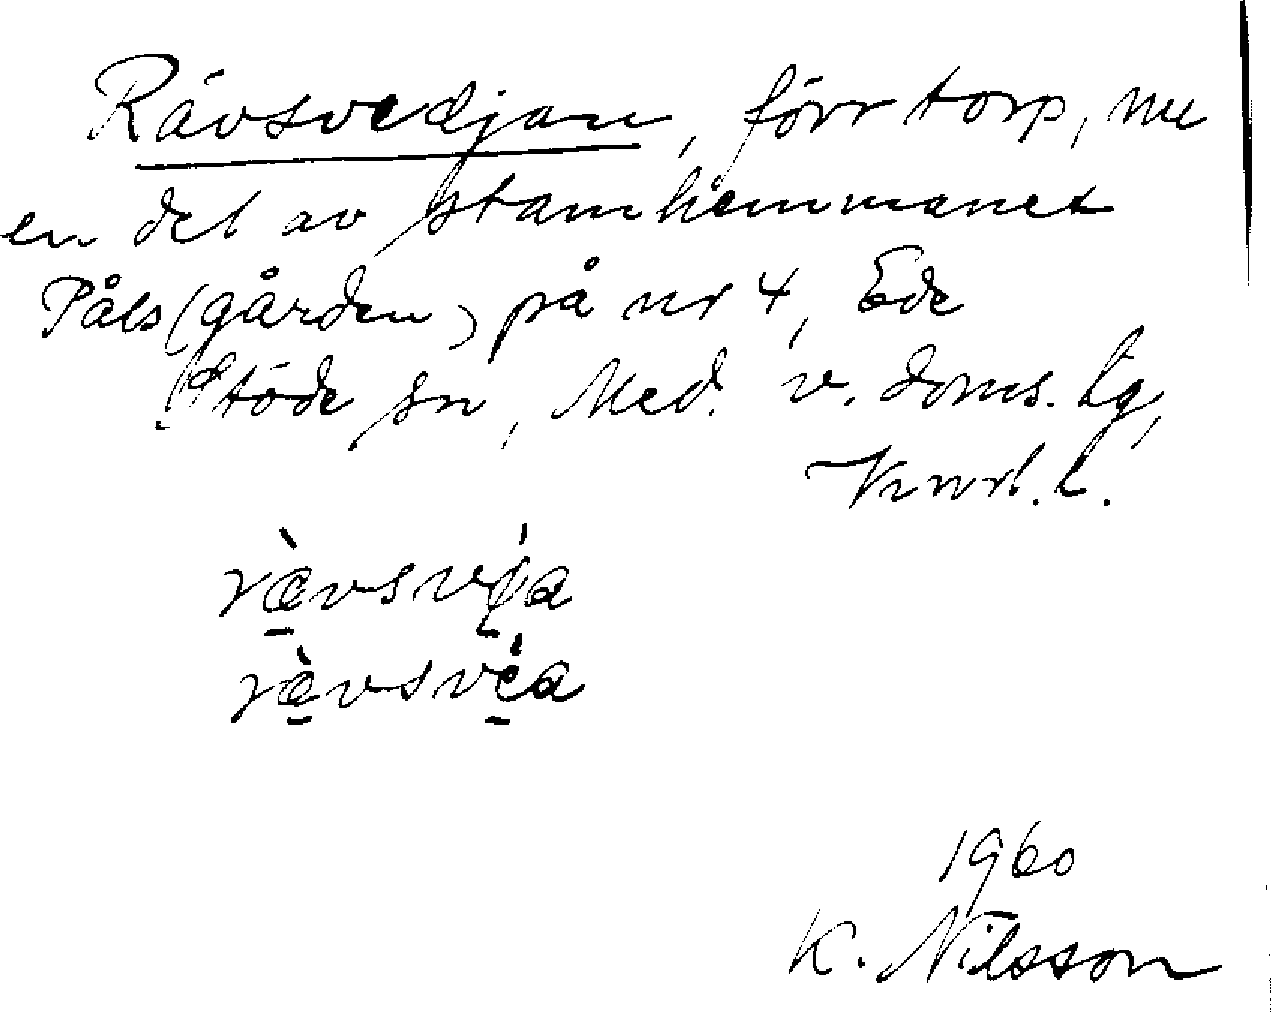 Rävsvedjan, förr torp, nu
en del av stamhemmanet
Påls(gården) på nr 4, Ede
Stöde sn, Med. v. doms. lg,
Vnrl. l.
ræ̀vsvéa
ræ̀vsvéa
1960
K. Nilsson